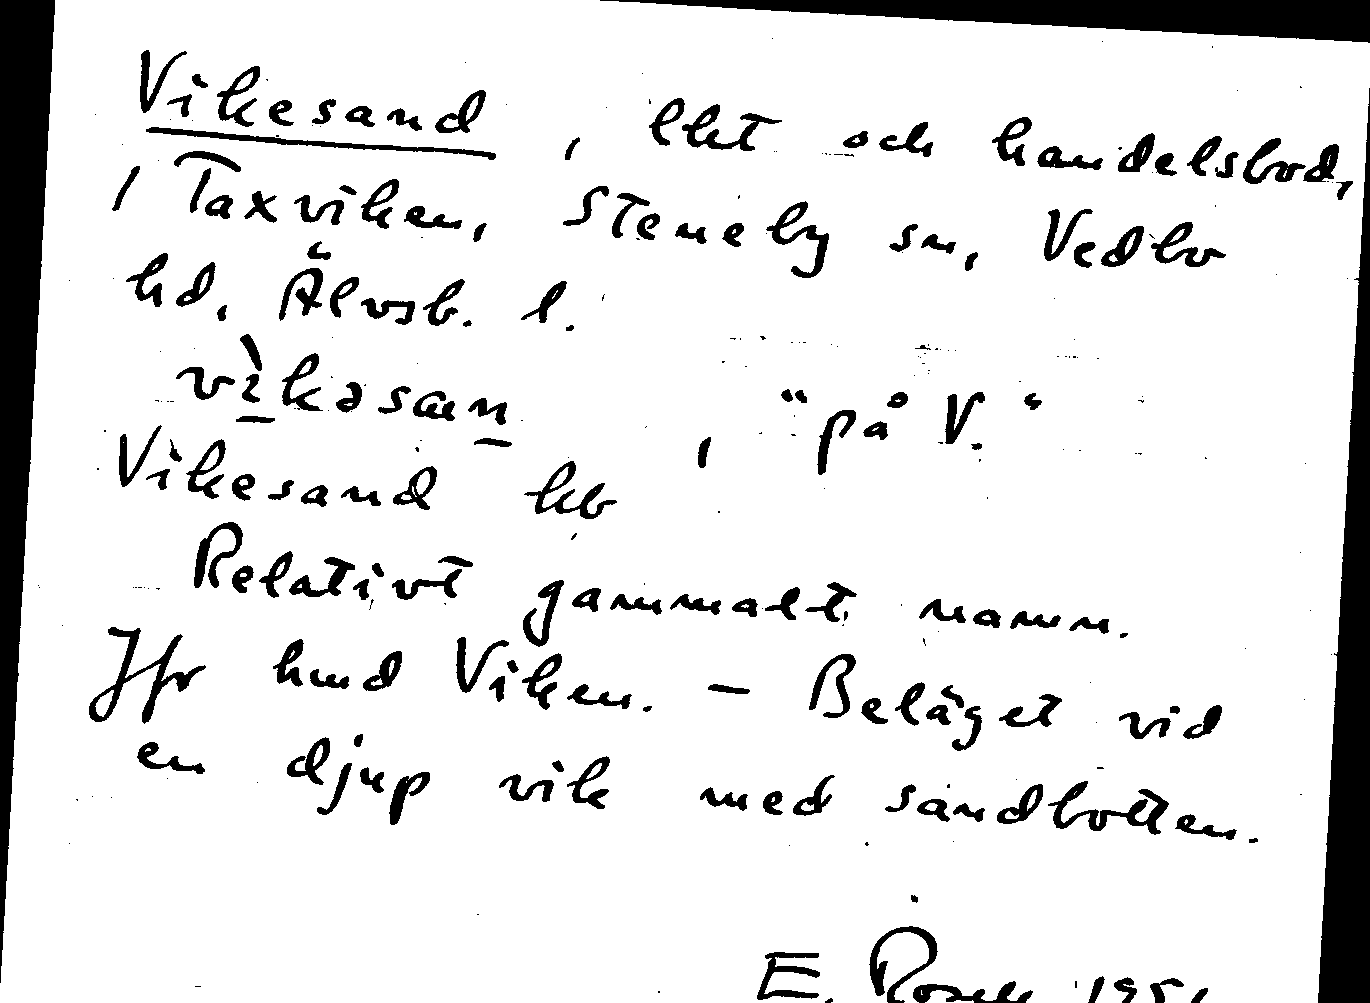 Vikesand, lht och handelsbod,
/ Taxviken, Steneby sn, Vedbo
hd, Älvsb. l.
vìkəsæn, "på V."
Vikesand kb
Relativt gammalt namn.
Jfr hmd Viken. – Beläget vid
en djup vik med sandbotten.
E.